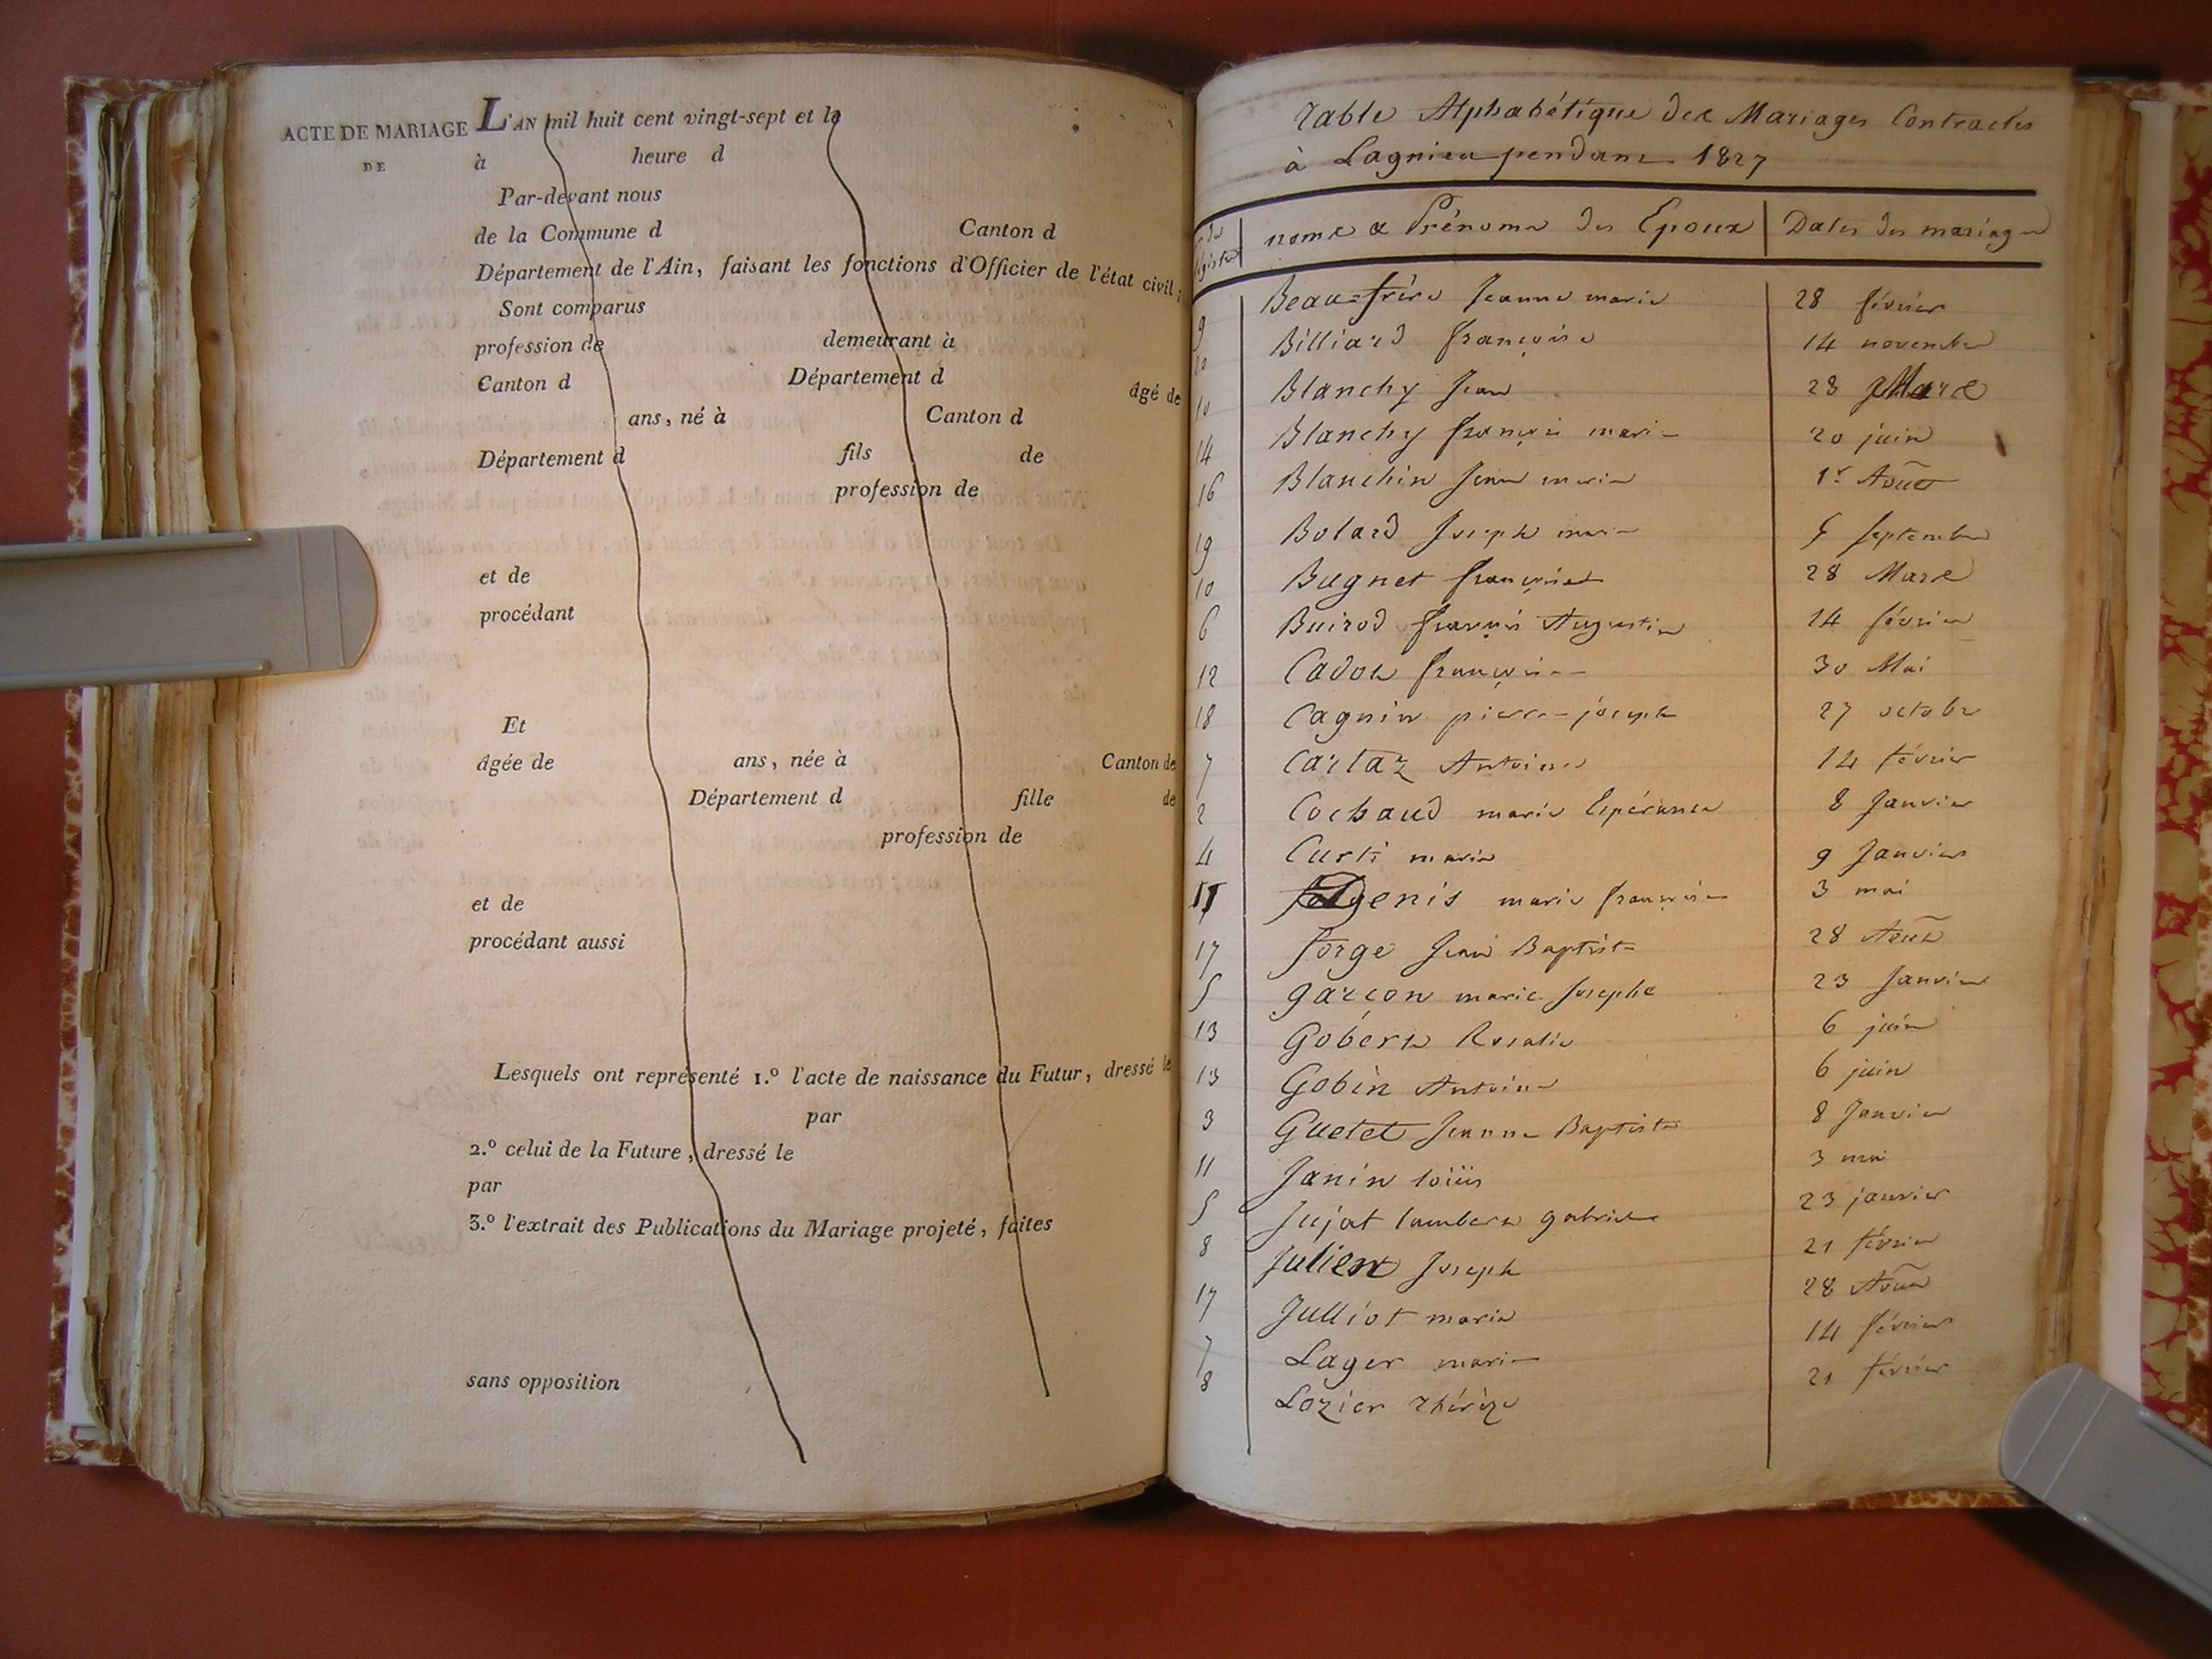 ACTE DE MARIAGE L'AN mil huit cent vingt-sept et le
DE à heure d
Par-devant nous
de la Commune d Canton d
Département de l'Ain, faisant les fonctions d'Officier de l'état civil;
Sont comparus
profession de demeurant à
Canton d Département d âgé de
ans, né à Canton d
Département d fils de
profession de
et de
procédant
Et
âgée de ans, née à Canton de
Département d fille de
profession de
et de
procédant aussi
Lesquels ont représenté 1.º l'acte de naissance du Futur, dressé le
par
2.º celui de la Future, dressé le
par
3.º l'extrait des Publications du Mariage projeté, faites
sans opposition
Table Alphabétique des Mariages Contractés
à Lagnieu pendant 1827
noms & Prénoms des Epoux Dates des mariages
9 Beaufrère Jeanne marie 28 février
20 Billiard françoise 14 novembre
10 Blanchy Jean 28 Mars
14 Blanchy françois marie 20 juin
16 Blanchin Jean marie 1r Août
19 Bolard Joseph marie 5 septembre
10 Bugnet françoise 28 Mars
6 Buirod françois Augustin 14 février
12 Cadou françoise 30 Mai
18 Cagnin pierre-joseph 27 octobre
7 Cartaz Antoine 14 février
2 Cochaud marie Espérance 8 Janvier
4 Curti marie 9 Janvier
11 Denis marie françoise 3 mai
17 forge Jean Baptiste 28 Août
5 garçon marie Josephe 23 Janvier
13 Gobert Rosalie 6 juin
13 Gobin Antoine 6 juin
3 Guetet Jeanne Baptiste 8 Janvier
11 Janin loüis 3 mai
5 Jujat lambert gabriel 23 janvier
8 Julien Joseph 21 février
17 Julliot marie 28 Août
7 Lager marie 14 février
8 Lozier Thérèze 21 février